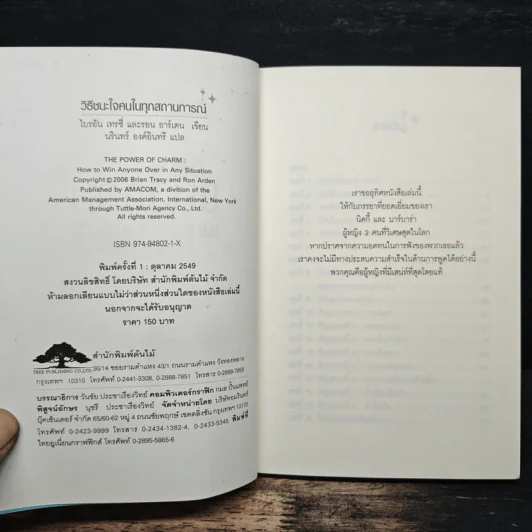 วิธีชนะใจคนในทุกสถานการณ์
ไบรอัน เทรซี่ และรอน อาร์เดน เขียน
นรินทร์ องค์อินทรี แปล
THE POWER OF CHARM :
How to Win Anyone Over in Any Situation
Copyright © 2006 Brian Tracy and Ron Arden
Published by AMACOM, a divition of the
American Management Association, International, New York
through Tuttle-Mori Agency Co., Ltd.
All rights reserved.
ISBN 974-94802-1-X
พิมพ์ครั้งที่ 1 : ตุลาคม 2549
สงวนลิขสิทธิ์ โดยบริษัท สำนักพิมพ์ต้นไม้ จำกัด
ห้ามลอกเลียนแบบไม่ว่าส่วนหนึ่งส่วนใดของหนังสือเล่มนี้
นอกจากจะได้รับอนุญาต
ราคา 150 บาท
สำนักพิมพ์ต้นไม้
TREE PUBLISHING CO.,LTD.
36/14 ซอยรามคำแหง 43/1 ถนนรามคำแหง วังทองหลาง
กรุงเทพฯ 10310 โทรศัพท์ 0-2441-3308, 0-2888-7851 โทรสาร
บรรณาธิการ วันชัย ประชาเรืองวิทย์ คอมพิวเตอร์กราฟิก กมล
พิสูจน์อักษร นุชรี ประชาเรืองวิทย์ จัดจำหน่ายโดย
บุ๊คเซ็นเตอร์ จำกัด 65/60-62 หมู่ 4 ถนนชัยพฤกษ์ เขตตลิ่งชัน กรุงเทพฯ 10170
โทรศัพท์ 0-2423-9999 โทรสาร 0-2434-1382-4, 0-2433-5345 พิมพ์ที่
ไทยยูเนี่ยนกราฟฟิกส์ โทรศัพท์ 0-2895-5865-6
เราขออุทิศหนังสือเล่มนี้
ให้กับภรรยาที่ยอดเยี่ยมของเรา
นิคกี้ และ บาร์บาร่า
ผู้หญิง 2 คนที่วิเศษสุดในโลก
หากปราศจากความอดทนในการฟังของพวกเธอแล้ว
เราคงจะไม่มีทางประสบความสำเร็จในด้านการพูดได้อย่างนี้
พวกคุณคือผู้หญิงที่มีเสน่ห์ที่สุดโดยแท้